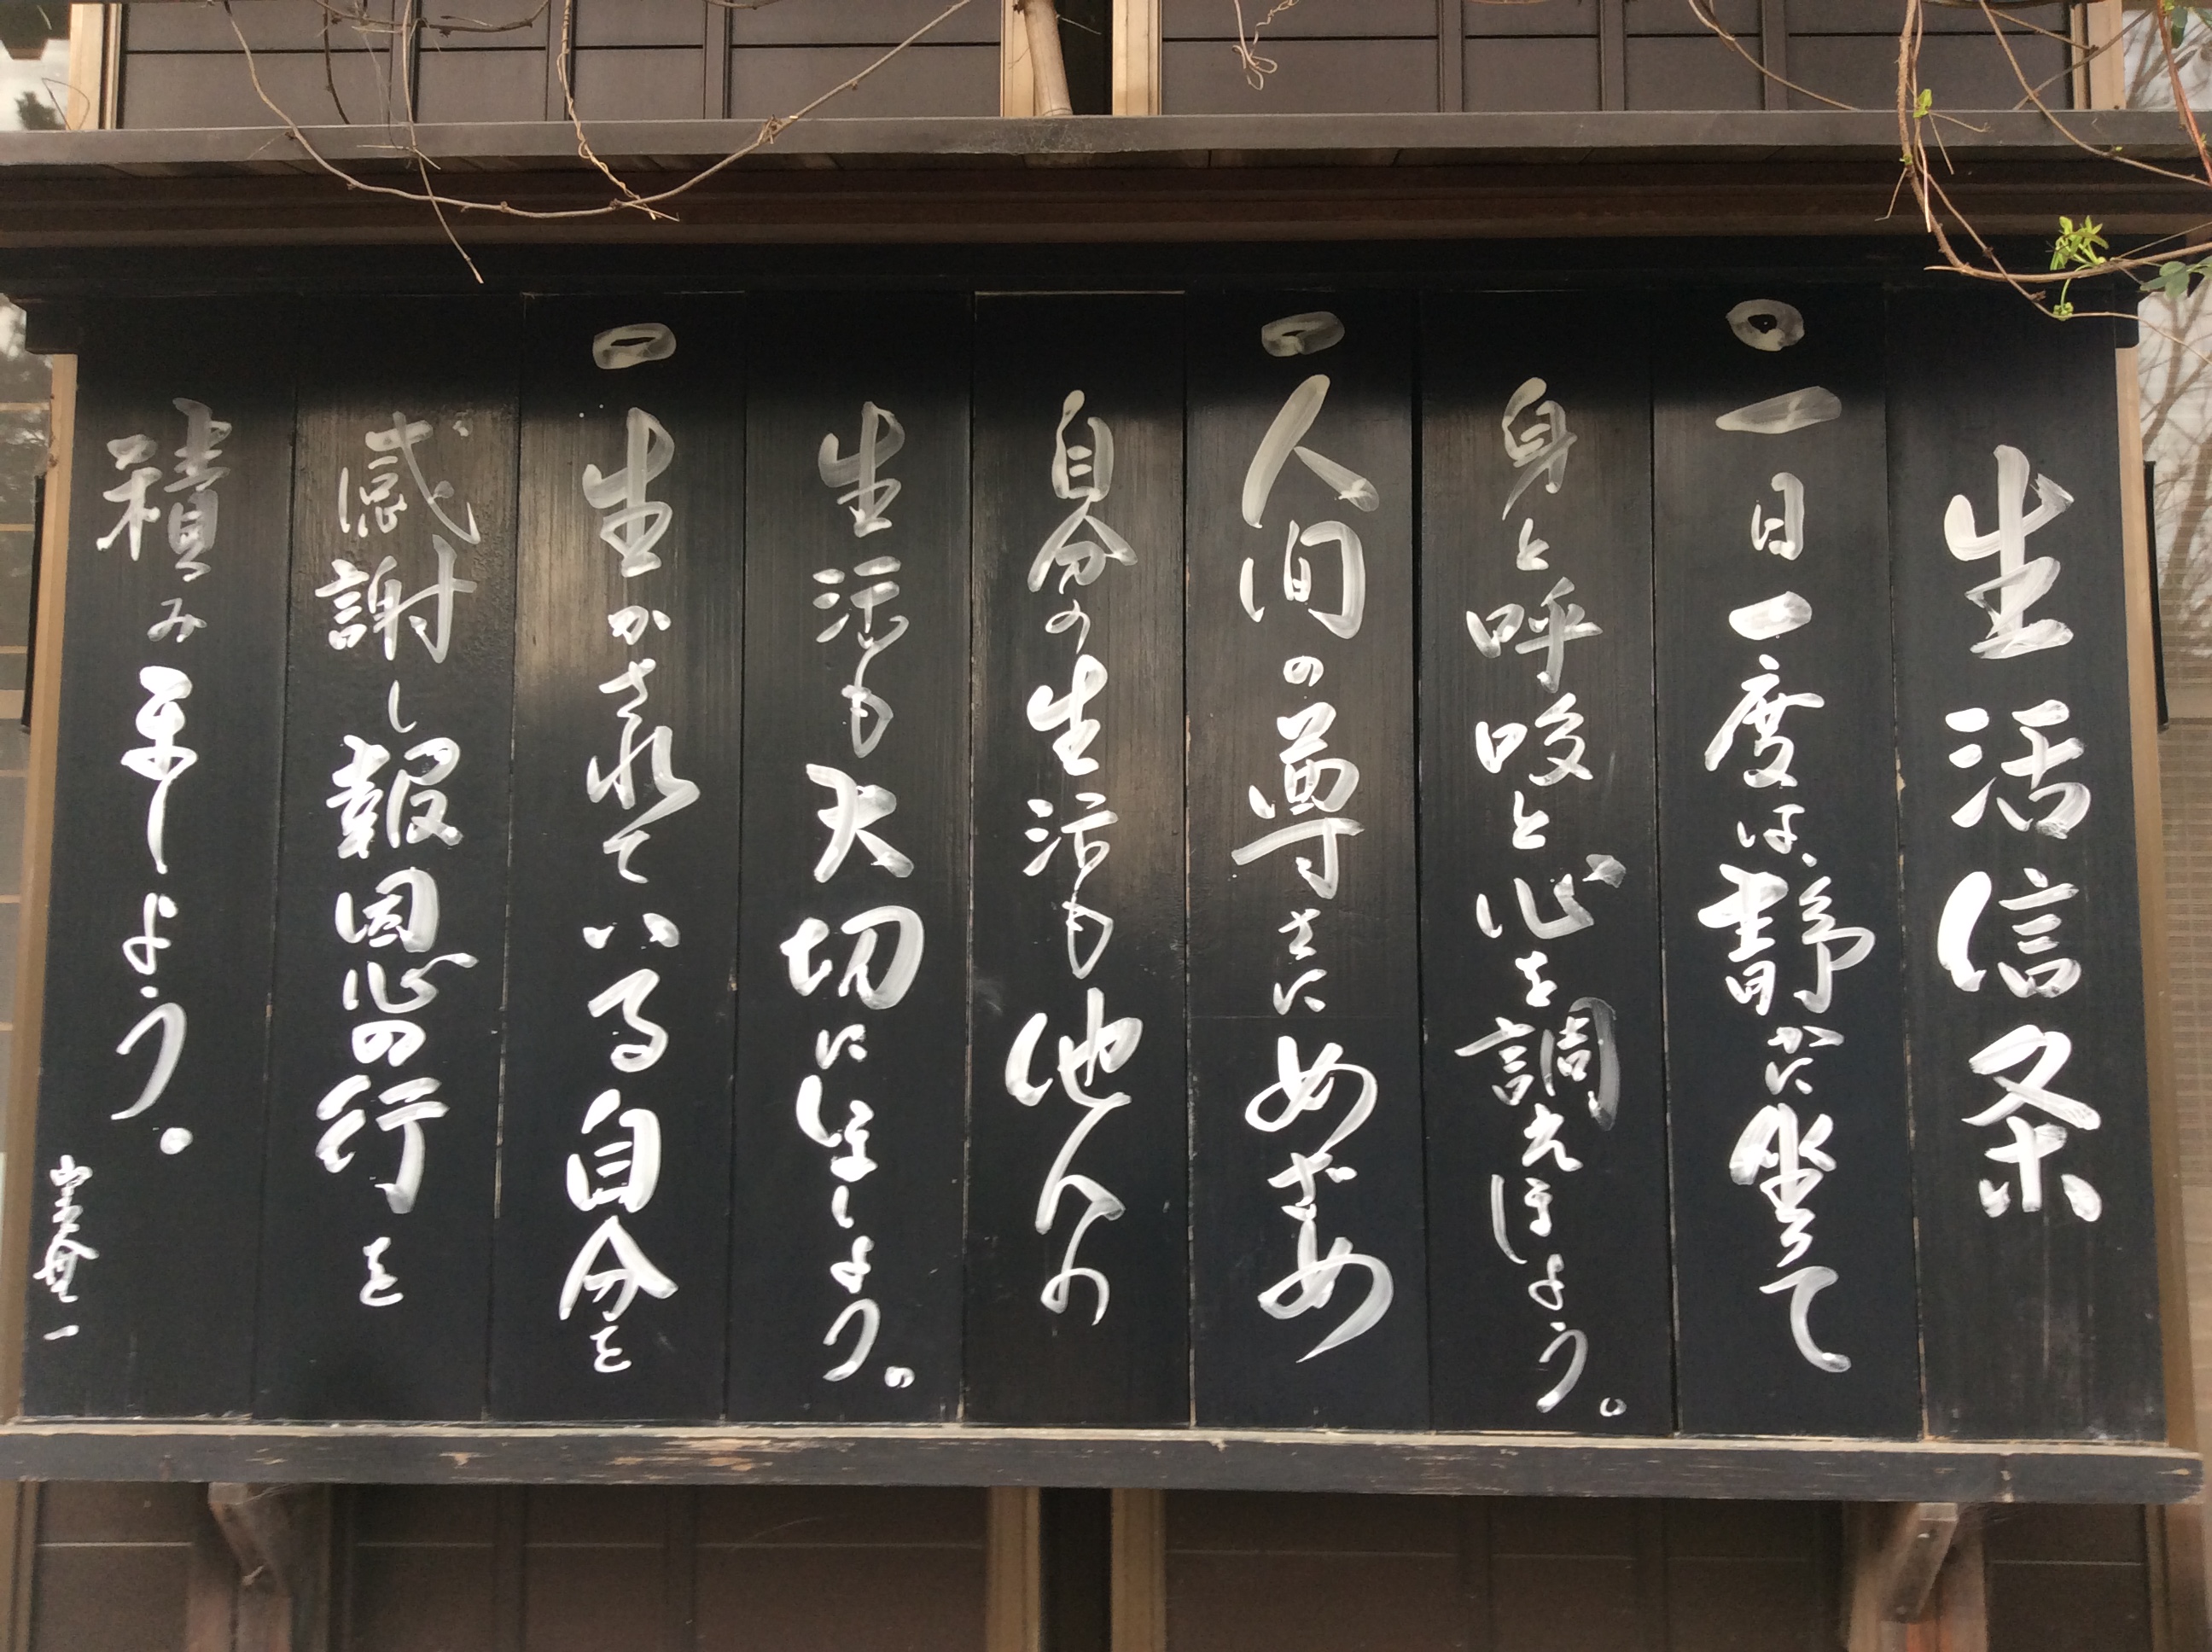 生活信条
○一日一度は静かに坐って
身と呼吸と心を調えましょう。
○人間の尊さにめざめ
自分の生活も他人の
生活も大切にしましょう。
○生かされている自分を
感謝し報恩の行を
積みましょう。